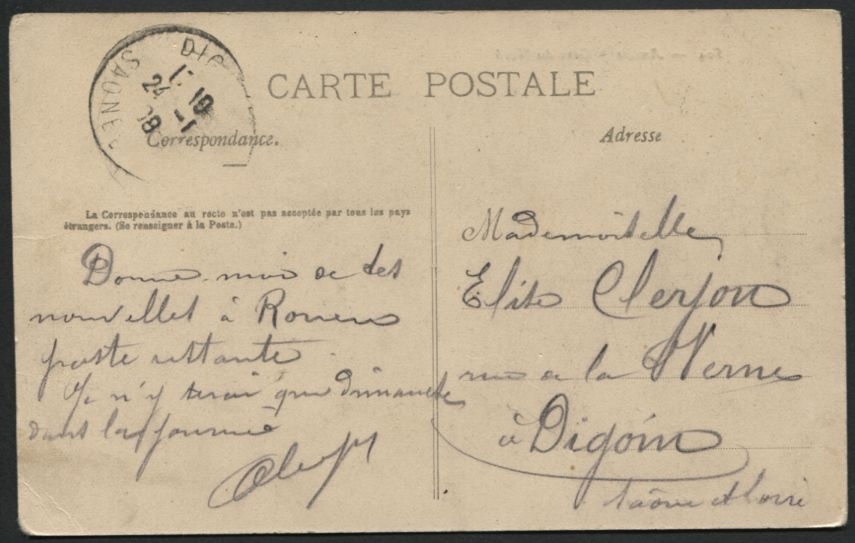 CARTE POSTALE
DIG
SAONE
17 19
24 -1
08
Correspondance.
La Correspondance au recto n'est pas acceptée par tous les pays
étrangers. (Se renseigner à la Poste.)
Donne-moi de tes
nouvelles à Rouen
poste restante.
Je n'y serai que dimanche
dans la journée
Adresse
Mademoiselle
Elise Clerjon
rue de la Verne
à Digoin
Saône et Loire